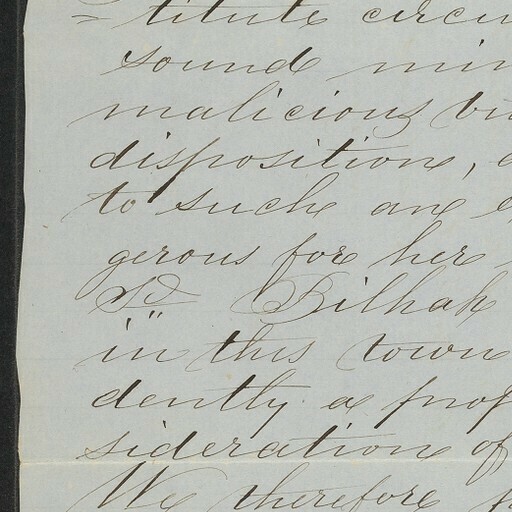 = titute circu
sound min
malicious
disposition,
to such an e
gerous for her
Sd Bilhah
in this town
dently a prof
sideration of
We therefore